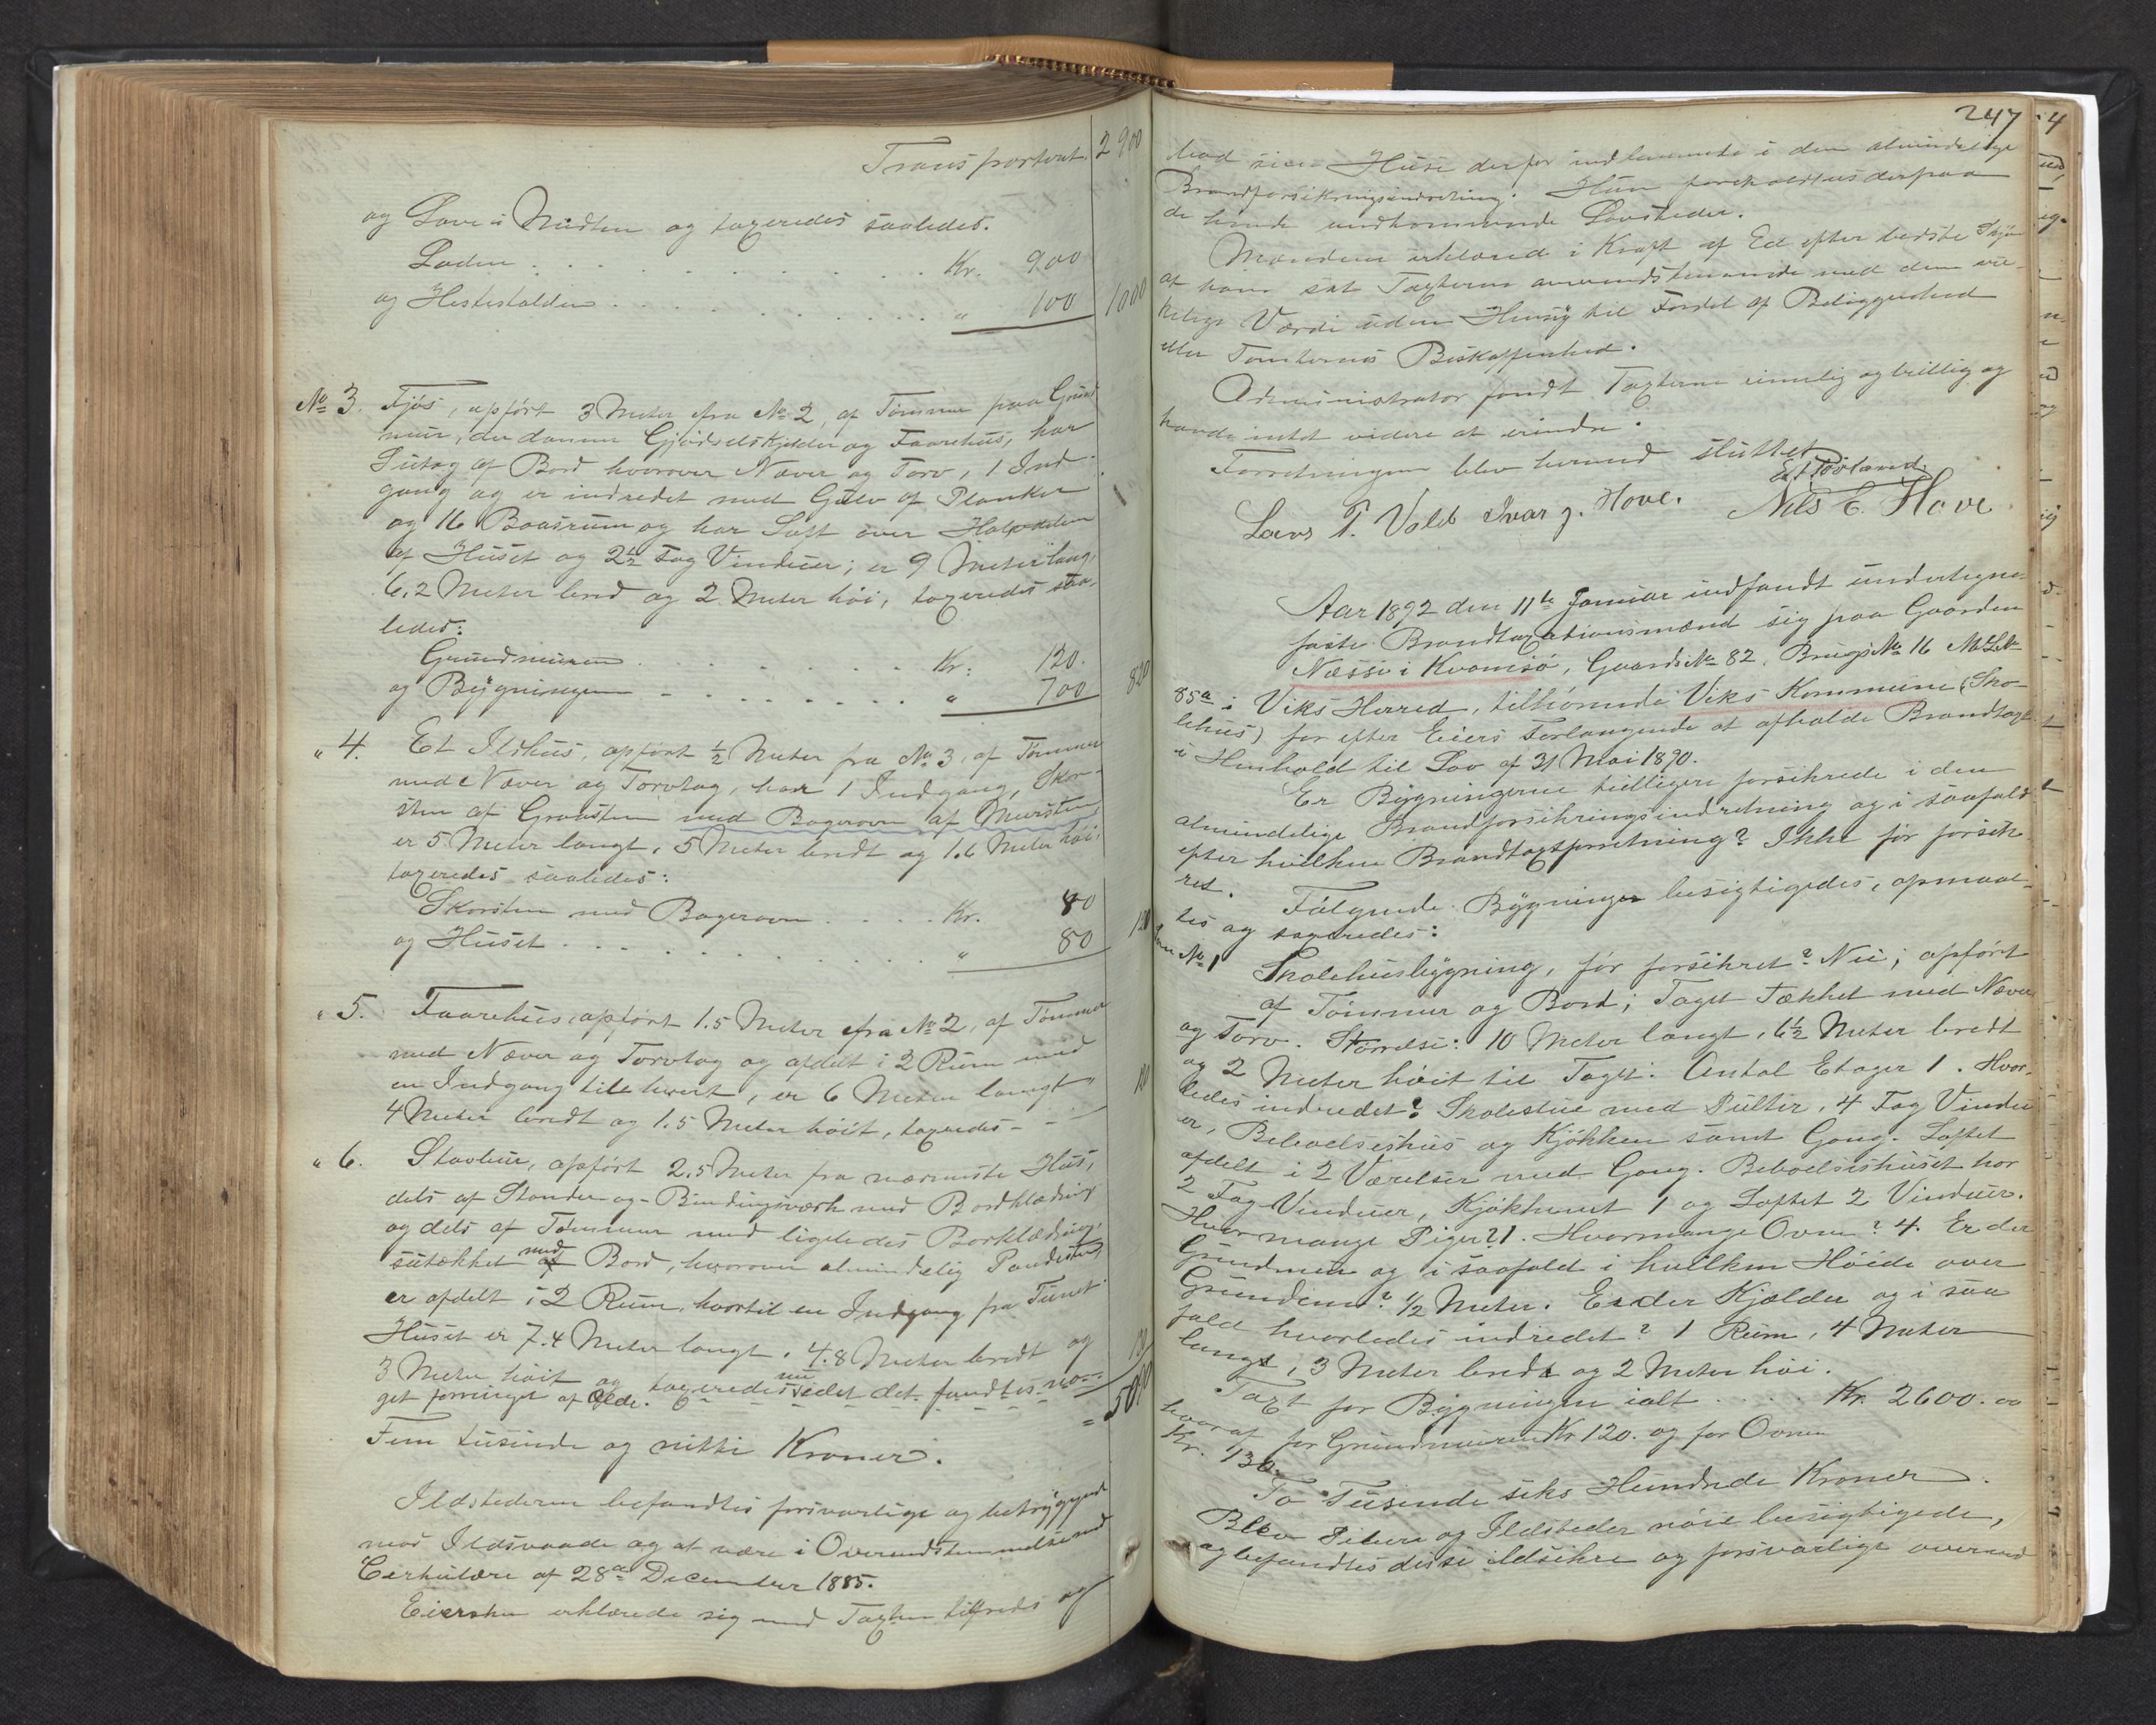 Transportert. 2900
og Lave i Midten og taxeredes saaledes.
Laden . . . . Kr. 900
og Hestestalden . . . . " 100 1000
No 3. Fjös, opfört 3 Meter fra No 2, af Tömmer paa Grund
mur, der danner Gjödselskjelder og Faarehus, har
Sutag af Bord hvorover Næver og Torv, 1 Ind-
gang og er indredet med Gulv af Planker
og 16 Baasrum og har Loft over Halvdelen
af Huset og 2½ Fag Vinduer; er 9 Meter lang,
6,2 Meter bred og 2 Meter höi, taxeredes saa-
ledes:
Grundmuren . . . . Kr. 120.
og Bygningen . . . . " 700 820
" 4. Et Ildhus, opfört ½ Meter fra No 3, af Tömmer
med Næver og Torvtag, har 1 Indgang, Skor-
sten af Graasten med Bagerovn af Mursten,
er 5 Meter langt, 5 Meter bredt og 1.6 Meter höi,
taxeredes saaledes:
Skorsten med Bagerovn . . . . Kr. 80
og Huset . . . . " 80
" 5. Faarehus, opfört 1.5 Meter fra No 2, af Tömmer
med Næver og Torvtag og afdelt i 2 Rum med
en Indgang till hvert, er 6 Meter langt
4 Meter bredt og 1.5 Meter höit, taxeredes - -
" 6. Stavbur, opfört 2.5 Meter fra nærmeste Hus,
dels af Stander og Bindingsværk med Bordklædning
og dels af Tömmer med ligeledes Bordklædning,
sutækket med Bord, hvorover almindelig Pandesten,
er afdelt i 2 Rum, hvortil en Indgang fra Tunet
Huset er 7.4 Meter langt, 4.8 Meter bredt og
3 Meter höit og taxeredes nu idet det fandtes no-
get forringet af Ælde.
Fem tusinde og nitti Kroner.
Ildstederne befandtes forsvarlige og betryggende
mod Ildsvaade og at være i Overensstemmelse med
Cirkulære af 28de December 1885.
Eiersken erklærede sig med Taxten tilfreds og
247
bad sine Huse derfor indlemmede i den almindelige
Brandforsikringsindretning. Hun foreholdtes derpaa
de hende vedkommende Lovsteder.
Mændene erklæred i Kraft af Ed efter bedste Skjön
at have sat Taxterne overensstemmende med den vir-
kelige Værdi uden Hensyn til Fordel af Beliggenhed
eller Tomternes Beskaffenhed.
Administrator fandt Taxterne rimelig og billig og
havde intet videre at erindre.
Forretningen blev hermed sluttet
Lars T. Vold Ivar J. Hove. Nils E. Hove
Aar 1892 den 11te Januar indfandt undertegne-
faste Brandtaxationsmænd sig paa Gaarden
Næsse i Kvamsö, Gaards No 82, Brugs No 16 M. L. No
85a i Viks Herred, tilhörende Viks Kommune (Sko-
lehus) for efter Eiers Forlangende at afholde Brandtaxt
i Henhold til Lov af 31 Mai 1890.
Er Bygningerne tidligere forsikrede i den
almindelige Brandforsikringsindretning og i saafald
efter hvilken Brandtaxtforretning? Ikke för forsik-
ret.
Fölgende Bygninger besigtigedes, opmaal-
tes og taxeredes:
No 1 Skolehusbygning, för forsikret? Nei; opfört
af Tömmer og Bord; Taget tækket med Næver
og Torv. Störrelse: 10 Meter langt, 6½ Meter bredt
og 2 Meter höit til Taget. Antal Etager 1. Hvor-
ledes indredet? Skolestue med Pulter, 4 Fag Vindu
er, Beboelseshus og Kjökken samt Gang. Loftet
afdelt i 2 Værelser med Gang. Beboelseshuset har
2 Fag Vinduer, Kjökkenet 1 og Loftet 2 Vinduer.
Hvor mange Piger? 1. Hvormange Ovne? 4. Er der
Grundmur og i saafald i hvilken Höide over
Grunden? 1/2 Meter. Er der Kjælder og i saa
fald hvorledes indredet? 1 Rum, 4 Meter
langt, 3 Meter bredt og 2 Meter höi.
Taxt for Bygningen ialt . . . . Kr. 2600.00
hvoraf for Grundmuren Kr 120. og for Ovnen
Kr. 130.
To Tusinde seks Hundrede Kroner.
Blev Piber og Ildsteder nöie besigtigede,
og befandtes disse ildsikre og forsvarlige overens